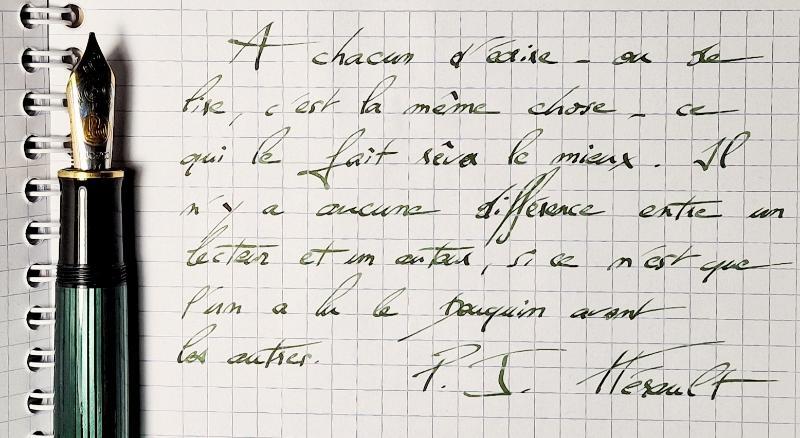 A chacun d'écrire - ou de
lire, c'est la même chose - ce
qui le fait rêver le mieux. Il
n'y a aucune différence entre un
lecteur et un auteur, si ce n'est que
l'un a lu le bouquin avant
les autres.
P. J. Hérault